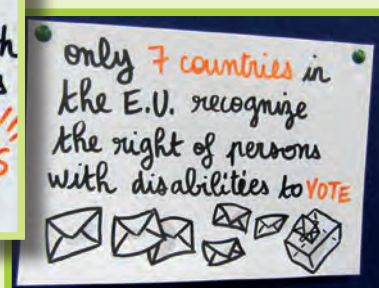 only 7 countries in
the E.U. recognize
the right of persons
with disabilities to VOTE